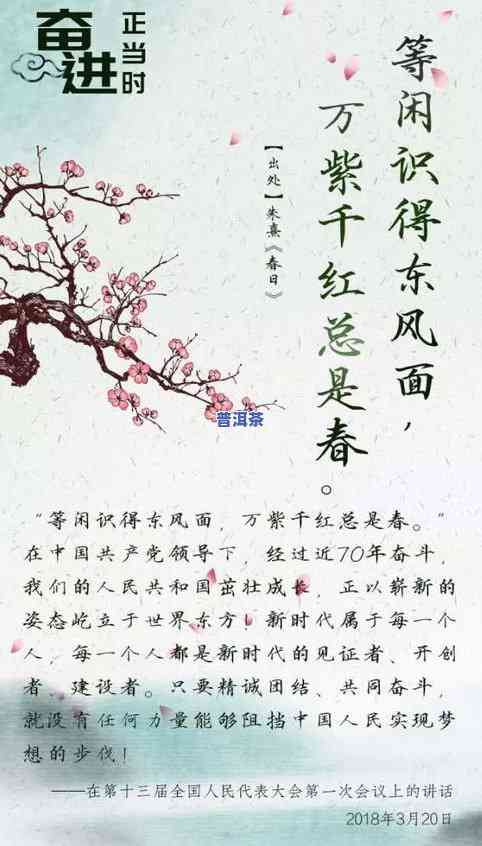 奋进
正当时
等闲识得东风面，
万紫千红总是春。
【出处】朱熹《春日》
普洱茶
“等闲识得东风面，万紫千红总是春。”
在中国共产党领导下，经过近70年奋斗，
我们的人民共和国茁壮成长，正以崭新的
姿态屹立于世界东方！新时代属于每一个
人，每一个人都是新时代的见证者、开创
者、建设者。只要精诚团结、共同奋斗，
就没有任何力量能够阻挡中国人民实现梦
想的步伐！
——在第十三届全国人民代表大会第一次会议上的讲话
2018年3月20日